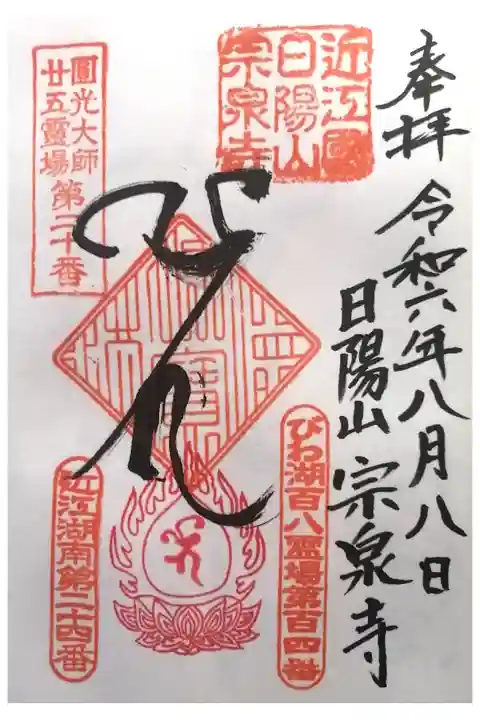 奉拝
令和六年八月八日
日陽山 宗泉寺
近江國
日陽山
宗泉寺
圓光大師
廿五靈場第二十番
びわ湖百八霊場第百四番
近江湖南第二十四番